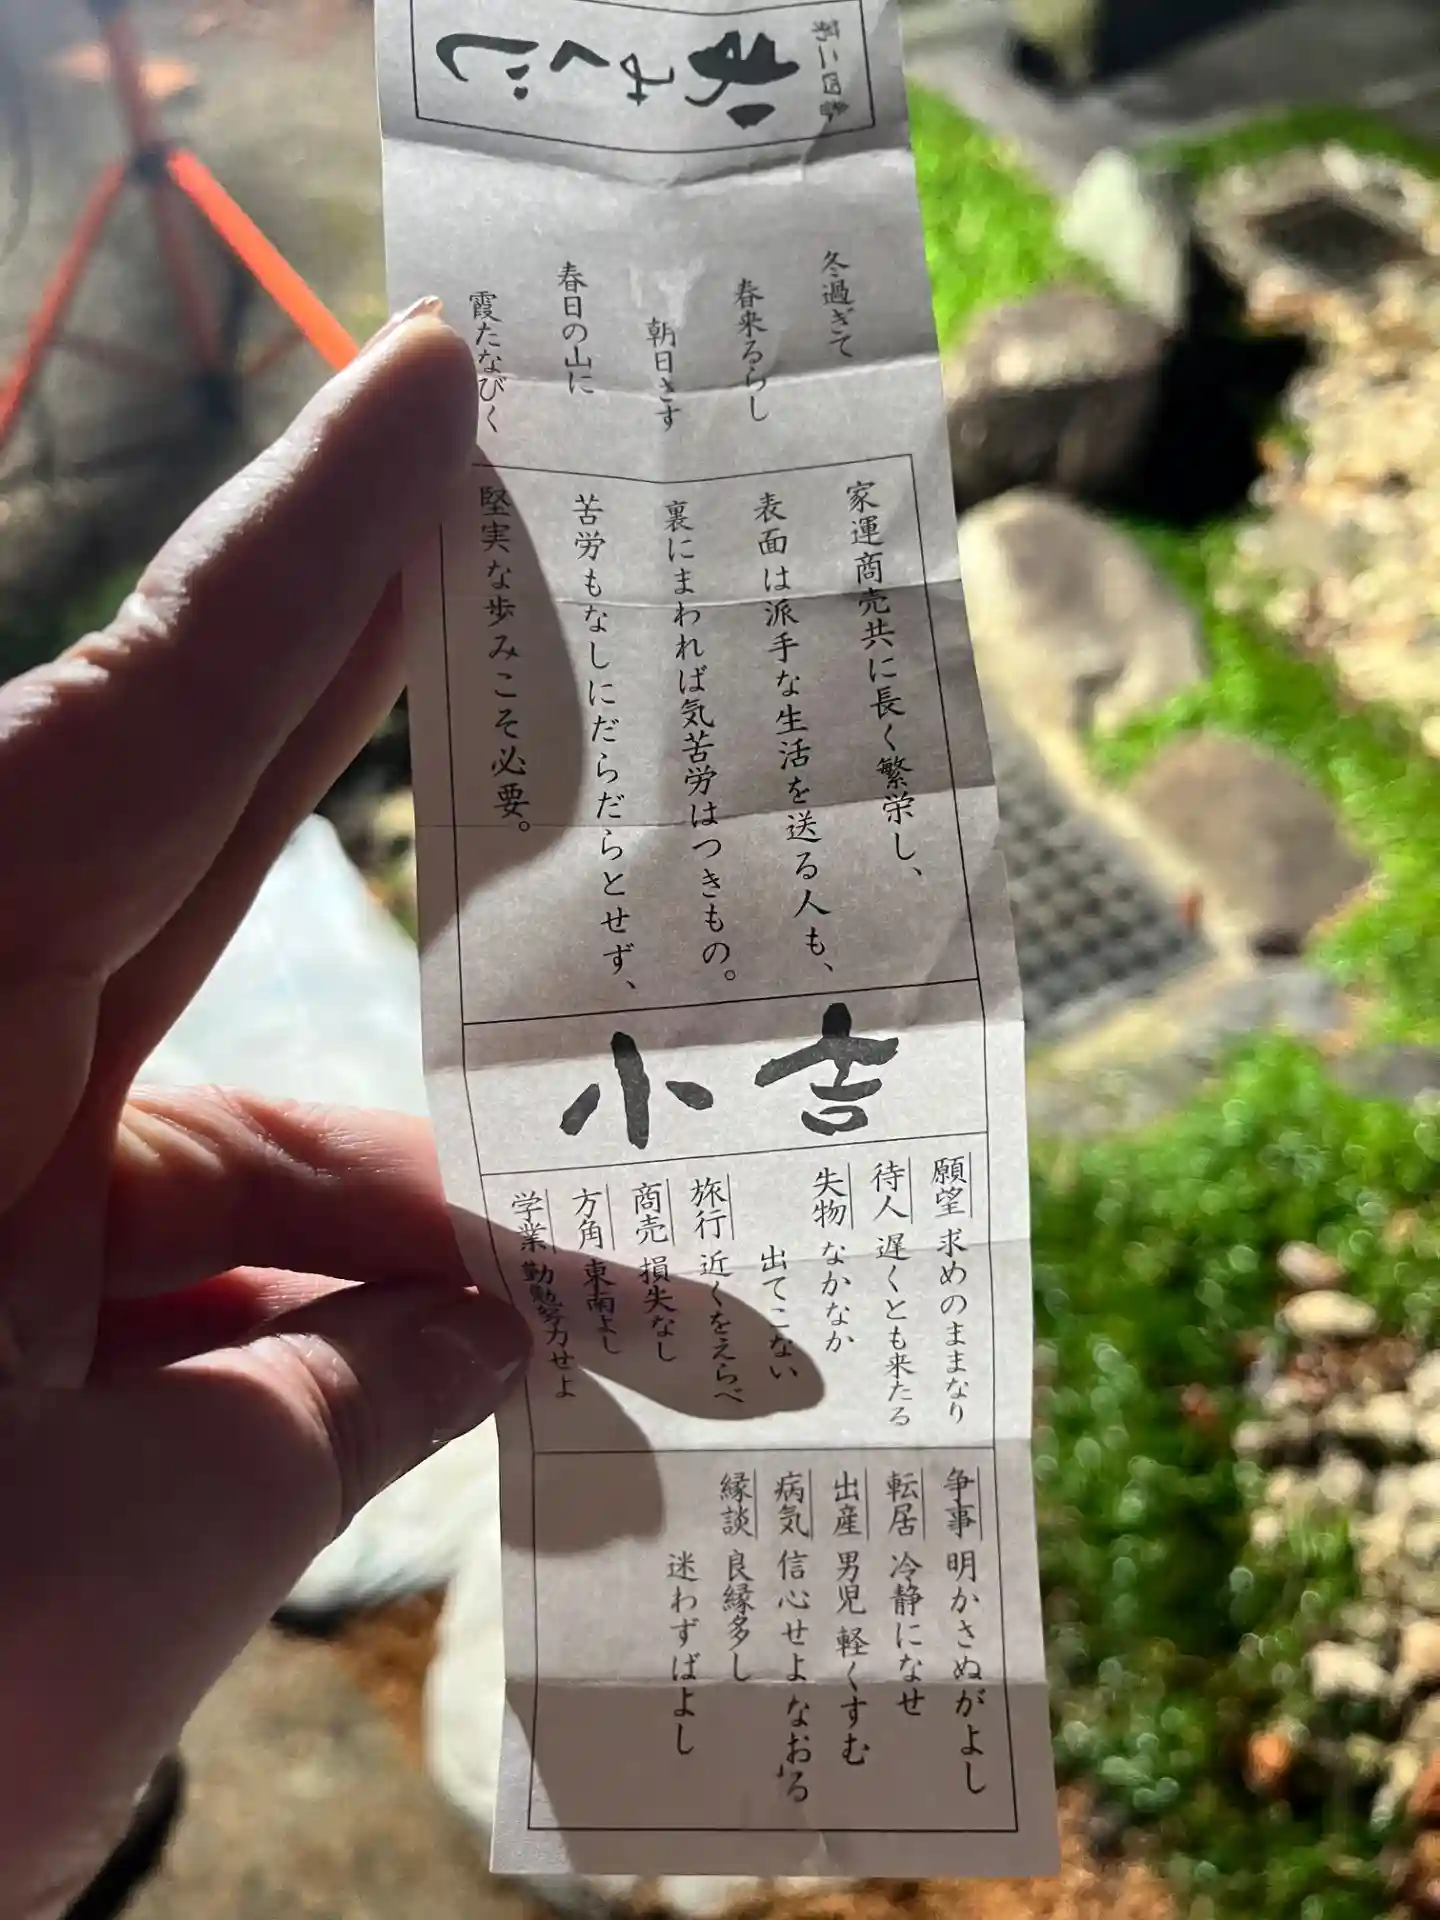 第二四番
おみくじ
冬過ぎて
春来るらし
朝日さす
春日の山に
霞たなびく
家運商売共に長く繁栄し、
表面は派手な生活を送る人も、
裏にまわれば気苦労はつきもの。
苦労もなしにだらだらとせず、
堅実な歩みこそ必要。
小吉
願望 求めのままなり
待人 遅くとも来たる
失物 なかなか
出てこない
旅行 近くをえらべ
商売 損失なし
方角 東南よし
学業 勤勉努力せよ
争事 明かさぬがよし
転居 冷静になせ
出産 男児 軽くすむ
病気 信心せよ なおる
縁談 良縁多し
迷わずばよし